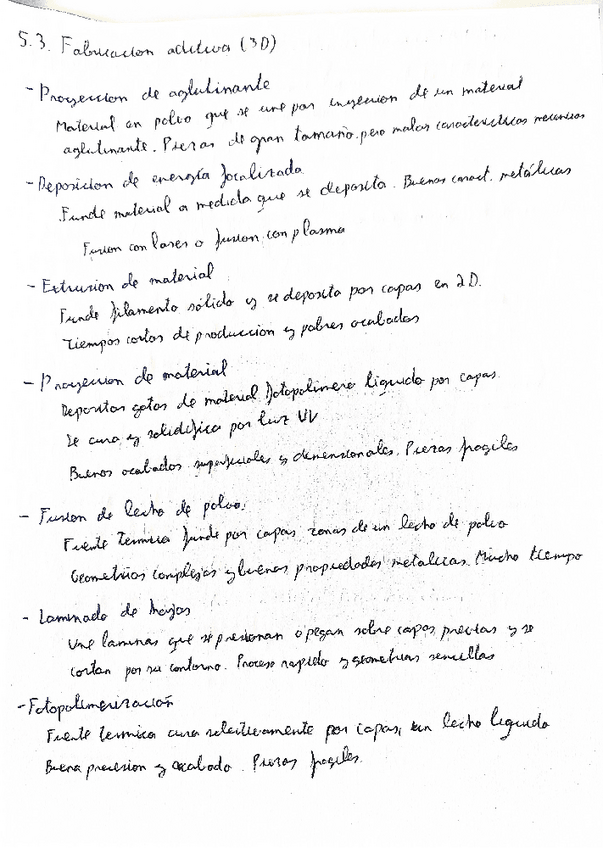 5.3. Fabricacion aditiva (3D)
- Proyeccion de aglutinante
Material en polvo que se une por inyeccion de un material
aglutinante. Piezas de gran tamaño, pero malas caracteristicas mecanicas
- Deposicion de energía focalizada
Funde material a medida que se deposita. Buenas caract. metálicas
Fusion con laser o fusion con plasma
- Extrusion de material
Funde filamento sólido y se deposita por capas en 2D.
Tiempos cortos de produccion y pobres acabados
- Proyeccion de material
Depositas gotas de material fotopolimero liquido por capas.
Se cura y solidifica por luz UV
Buenos acabados superficiales y dimensionales. Piezas fragiles
- Fusion de lecho de polvo.
Fuente termica funde por capas zonas de un lecho de polvo
Geometrias complejas y buenas propiedades metalicas. Mucho tiempo
- Laminado de hojas
Une laminas que se presionan o pegan sobre capas previas y se
cortan por su contorno. Proceso rapido y geometrias sencillas
- Fotopolimerización
Fuente termica cura selectivamente por capas, un lecho liquido
Buena precision y acabado. Piezas fragiles.